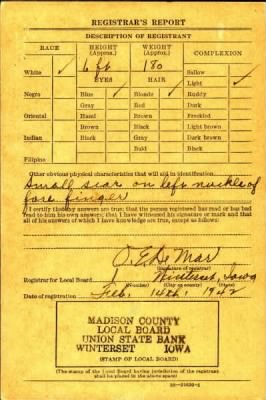 REGISTRAR'S REPORT
DESCRIPTION OF REGISTRANT
RACE HEIGHT (Approx.) WEIGHT (Approx.) COMPLEXION
White ✓ 6 ft 180 Sallow
EYES HAIR Light ✓
Negro Blue ✓ Blonde ✓ Ruddy
Gray Red Dark
Oriental Hazel Brown Freckled
Brown Black Light brown
Indian Black Gray Dark brown
Bald Black
Filipino
Other obvious physical characteristics that will aid in identification
Small scar on left nuckle of
fore finger
I certify that my answers are true; that the person registered has read or has had
read to him his own answers; that I have witnessed his signature or mark and that
all of his answers of which I have knowledge are true, except as follows:
O E De Mar
(Signature of registrar)
Registrar for Local Board 1 Winterset, Iowa
(Number) (City or county) (State)
Date of registration Feb. 14th, 1942
MADISON COUNTY
LOCAL BOARD
UNION STATE BANK
WINTERSET IOWA
(STAMP OF LOCAL BOARD)
(The stamp of the Local Board having jurisdiction of the registrant
shall be placed in the above space)